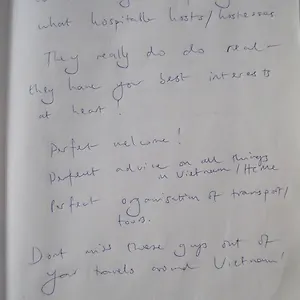 what hospitable hosts/hostesses
They really do do real-
they have your best interests
at heart!
Perfect welcome!
Perfect advice on all things
in Vietnam/Home
Perfect organisation of transport/
tours.
Dont miss these guys out of
your travels around Vietnam!